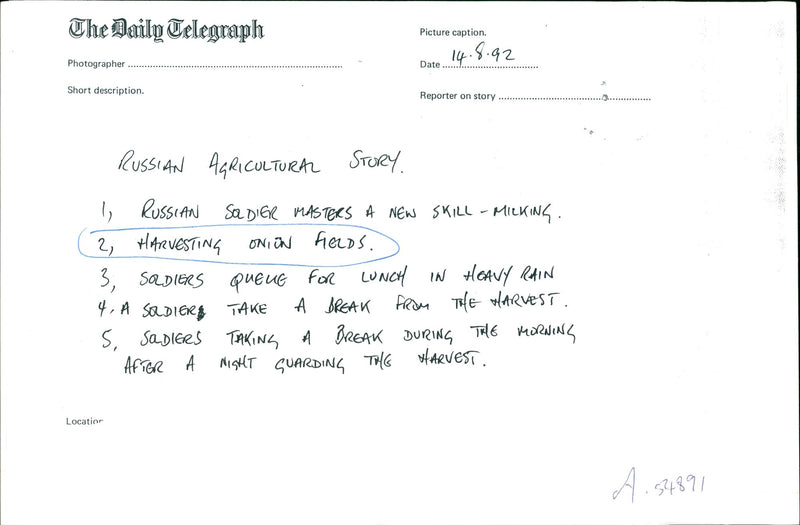 The Daily Telegraph
Picture caption.
Photographer
Date 14.8.92
Short description.
Reporter on story
RUSSIAN AGRICULTURAL STORY.
1, RUSSIAN SOLDIER MASTERS A NEW SKILL - MILKING.
2, HARVESTING ONION FIELDS.
3, SOLDIERS QUEUE FOR LUNCH IN HEAVY RAIN
4. A SOLDIER TAKE A BREAK FROM THE HARVEST.
5, SOLDIERS TAKING A BREAK DURING THE MORNING
AFTER A NIGHT GUARDING THE HARVEST.
Location
A.54891